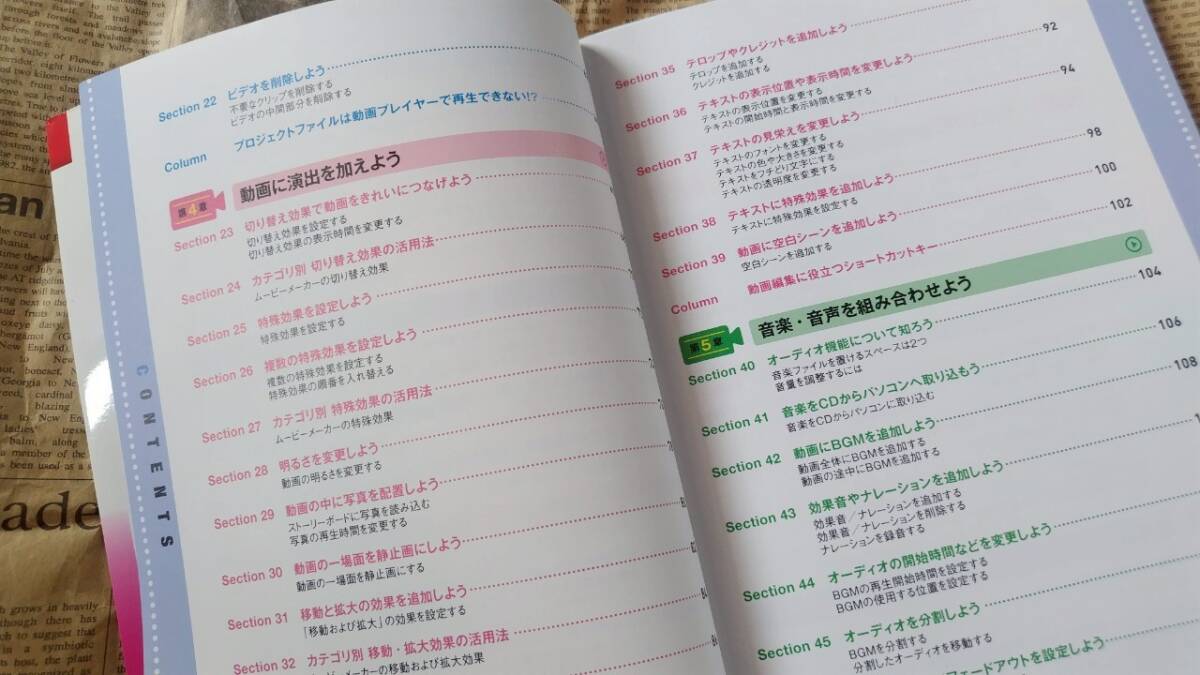 CONTENTS
Section 22 ビデオを削除しよう
不要なクリップを削除する
ビデオの中間部分を削除する
Column プロジェクトファイルは動画プレイヤーで再生できない!?
第4章 動画に演出を加えよう
Section 23 切り替え効果で動画をきれいにつなげよう
切り替え効果を設定する
切り替え効果の表示時間を変更する
Section 24 カテゴリ別 切り替え効果の活用法
ムービーメーカーの切り替え効果
Section 25 特殊効果を設定しよう
特殊効果を設定する
Section 26 複数の特殊効果を設定しよう
複数の特殊効果を設定する
特殊効果の順番を入れ替える
Section 27 カテゴリ別 特殊効果の活用法
ムービーメーカーの特殊効果
Section 28 明るさを変更しよう
動画の明るさを変更する
Section 29 動画の中に写真を配置しよう
ストーリーボードに写真を読み込む
写真の再生時間を変更する
Section 30 動画の一場面を静止画にしよう
動画の一場面を静止画にする
Section 31 移動と拡大の効果を追加しよう
「移動および拡大」の効果を設定する
Section 32 カテゴリ別 移動・拡大効果の活用法
ムービーメーカーの移動および拡大効果
Section 35 テロップやクレジットを追加しよう 92
テロップを追加する
クレジットを追加する
Section 36 テキストの表示位置や表示時間を変更しよう 94
テキストの表示位置を変更する
テキストの開始時間と表示時間を変更する
Section 37 テキストの見栄えを変更しよう 98
テキストのフォントを変更する
テキストの色や大きさを変更する
テキストをフチどり文字にする
テキストの透明度を変更する
Section 38 テキストに特殊効果を追加しよう 100
テキストに特殊効果を設定する
Section 39 動画に空白シーンを追加しよう 102
空白シーンを追加する
Column 動画編集に役立つショートカットキー 104
第5章 音楽・音声を組み合わせよう
Section 40 オーディオ機能について知ろう 106
音楽ファイルを置けるスペースは2つ
音量を調整するには
Section 41 音楽をCDからパソコンへ取り込もう 108
音楽をCDからパソコンに取り込む
Section 42 動画にBGMを追加しよう
動画全体にBGMを追加する
動画の途中にBGMを追加する
Section 43 効果音やナレーションを追加しよう
効果音/ナレーションを追加する
効果音/ナレーションを削除する
ナレーションを録音する
Section 44 オーディオの開始時間などを変更しよう
BGMの再生開始時間を設定する
BGMの使用する位置を設定する
Section 45 オーディオを分割しよう
BGMを分割する
分割したオーディオを移動する
フェードアウトを設定しよう